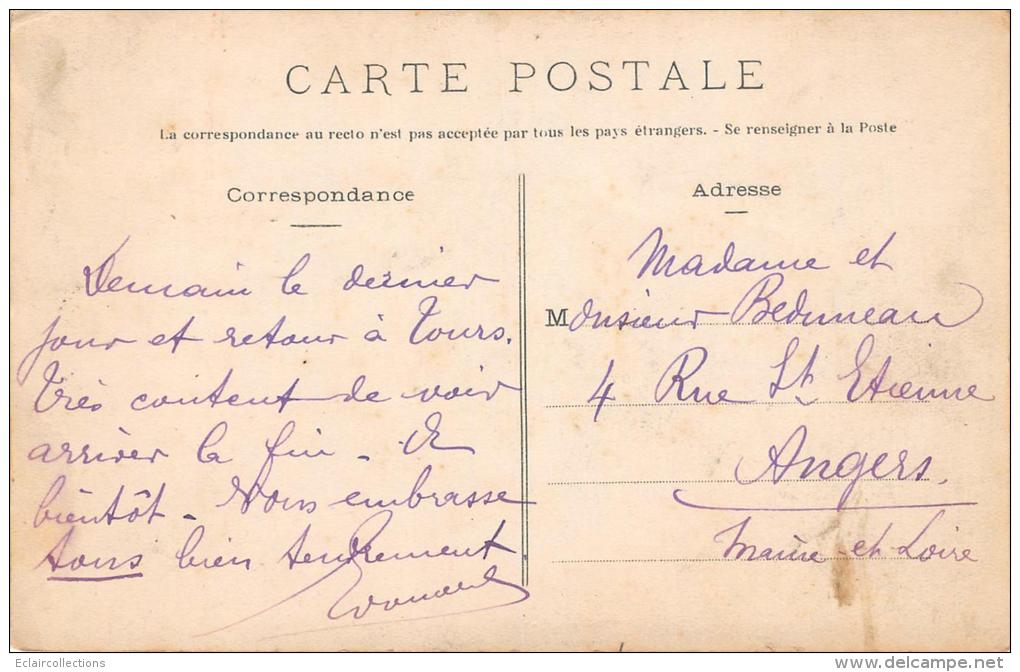 CARTE POSTALE
La correspondance au recto n'est pas acceptée par tous les pays étrangers. - Se renseigner à la Poste
Correspondance
Demain le dernier
jour et retour à Tours.
Très content de voir
arriver la fin - A
bientôt - Vous embrasse
tous bien tendrement
Edouard
Adresse
Madame et
Monsieur Beduneau
4 Rue St Etienne
Angers.
Maine-et-Loire
Eclaircollections
www.delcampe.net